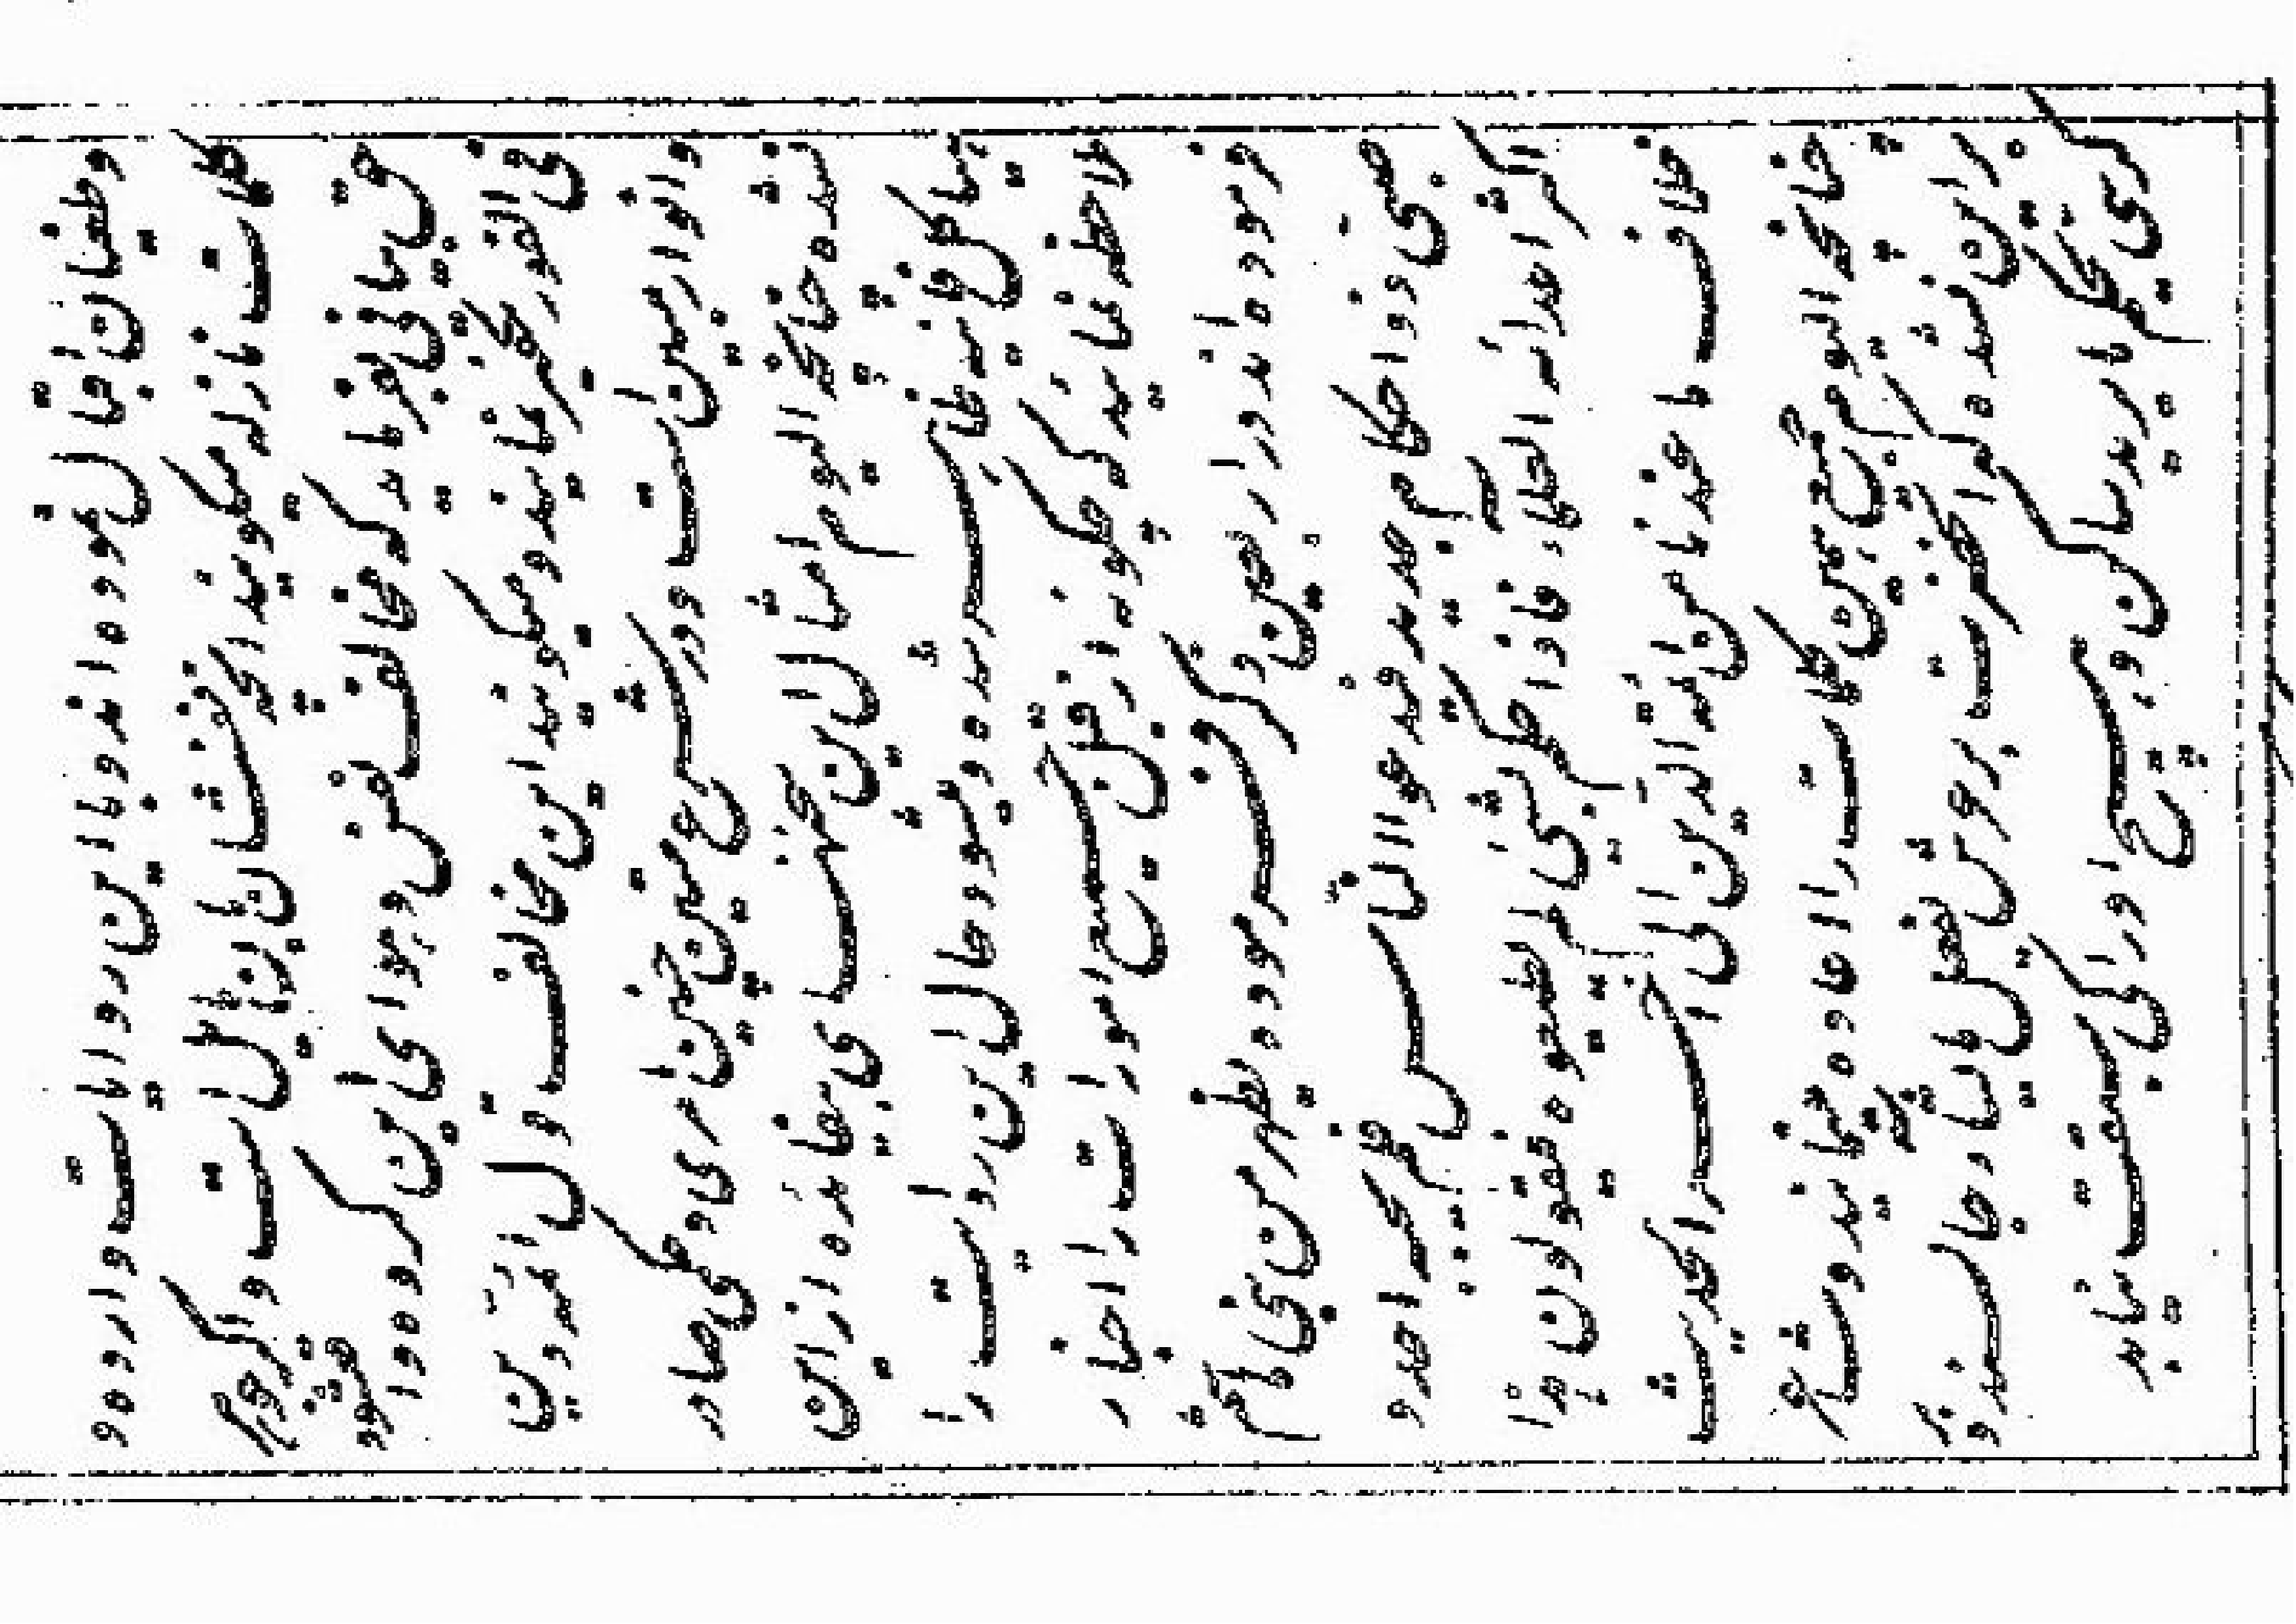 وطغیان اقبال نموده اند و با این روایات وارده و
نازله میگویند است و اگر
مخالف نص
و میکویند این مخالف قول ائمه دین
و انوار مبین است و در شرع متین چنین امری و حکمی صادر
نشده چنانچه الیوم امثال این از این
هیاکل فانیه ظاهر شده و میشود حال این روایت را
ملاحظه فرمائید که چکونه از قبل جمیع امورات را اخبار
فرموده اند در اربعین ذکر فرموده یظهر من بنی هاشم
صبی ذو احکام جدید فیدعوا الناس فلم یجبه احد و
اکثر اعدائه العلماء فاذا حکم بشیئ لم یطیعوه فیقولون هذا
خلاف ما عندنا من ائمة الدین الی آخر الحدیث
چنانچه الیوم جمیع همین کلمات را اعاده مینمایند و
بر این نشده که انحضرت بر عرش یفعل ما یشاء جالسند و بر
کرسی یحکم ما یرید ساکن و هیچ ادراکی سبقت نیابد